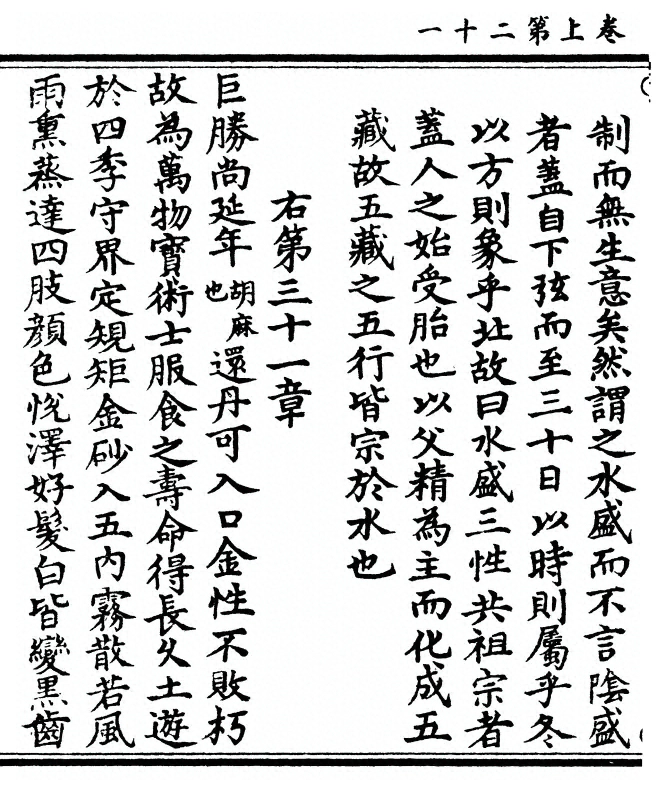 卷上第二十一
制而無生意矣然謂之水盛而不言陰盛
者蓋自下弦而至三十日以時則屬乎冬
以方則象乎北故曰水盛三性共祖宗者
蓋人之始受胎也以父精為主而化成五
藏故五藏之五行皆宗於水也
右第三十一章
巨勝尚延年胡麻也還丹可入口金性不敗朽
故為萬物寶術士服食之壽命得長久土遊
於四季守界定規矩金砂入五內霧散若風
雨熏蒸達四肢顏色悅澤好髮白皆變黑齒